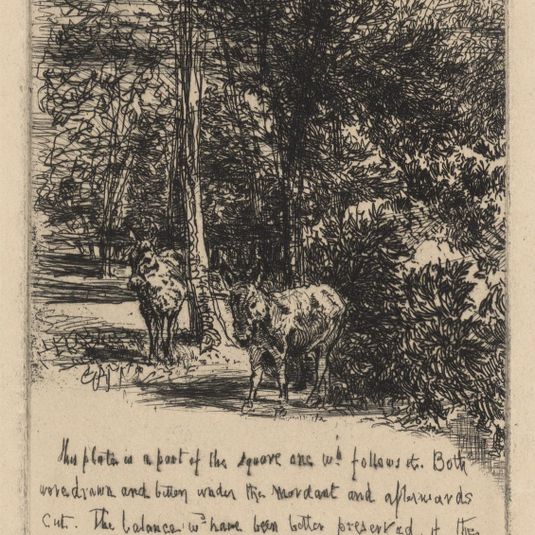 This plate is a part of the square one wh follows it. Both
were drawn and bitten under the mordant and afterwards
Cut. The balance wd have been better preserved if the